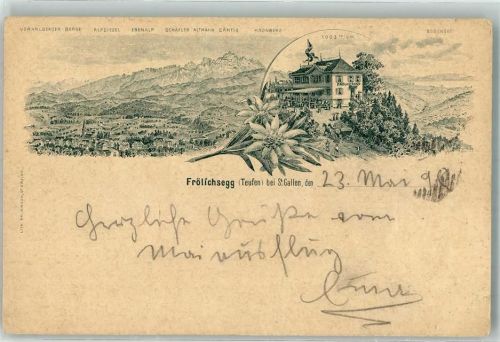 VORARLBERGER BERGE ALPSIEGEL EBENALP SCHÄFLER ALTMANN SÄNTIS KRONBERG
1003 m BODENSEE
Frölichsegg (Teufen) bei St. Gallen, den 23. Mai
Herzliche Grüße vom
Maiausflug